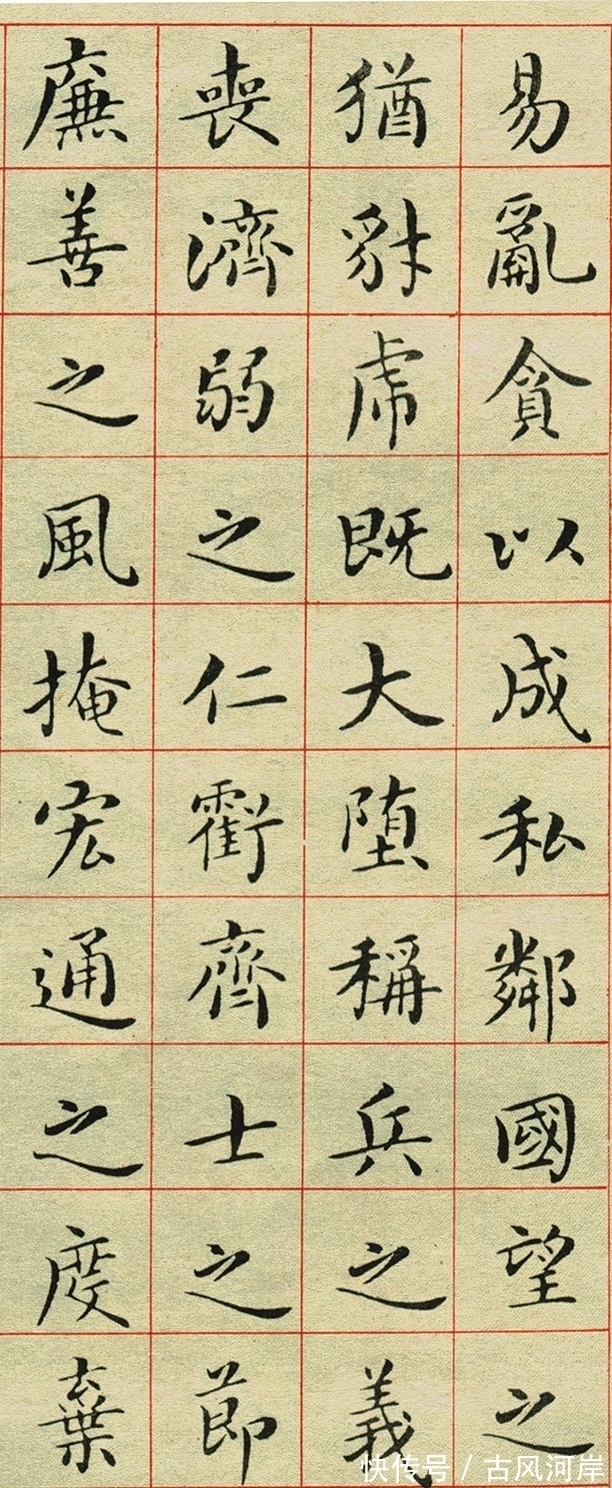 易亂貪以成私鄰國望之
猶豺虎既大墮稱兵之義
喪濟弱之仁虧齊士之節
廉善之風掩宏通之度棄
快传号 / 古风河岸